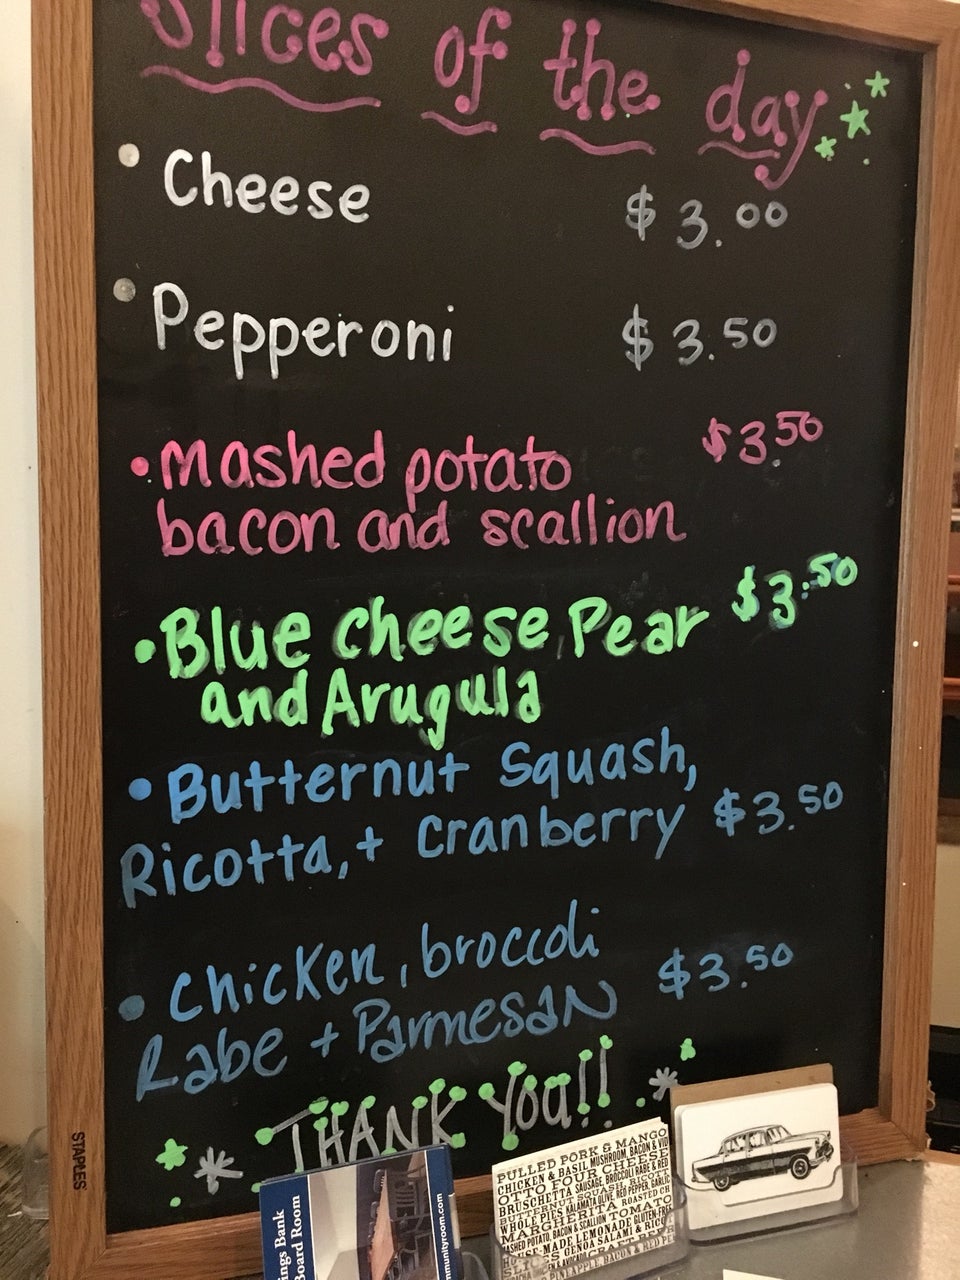 Slices of the day
• Cheese $3.00
• Pepperoni $3.50
• Mashed potato $3.50
bacon and scallion
• Blue Cheese Pear $3.50
and Arugula
• Butternut Squash,
Ricotta, + Cranberry $3.50
• Chicken, broccoli
Rabe + Parmesan $3.50
THANK You!!
STAPLES
ings Bank
Board Room
mmunityroom.com
PULLED PORK & MANGO
CHICKEN & BASIL MUSHROOM, BACON & VID
OTTO FOUR CHEESE
BRUSCHETTA SAUSAGE, BROCCOLI RABE & RED
BUTTERNUT SQUASH, RICOT
WHOLE PIES KALAMATA OLIVE, RED PEPPER, GARLIC
MARGHERITA ROASTED CH
MASHED POTATO, BACON & SCALLION TOMATO
USE-MADE LEMONADE GLUTEN-FREE
SLICES GENOA SALAMI & RICO
PINEAPPLE, BACON & RED PE